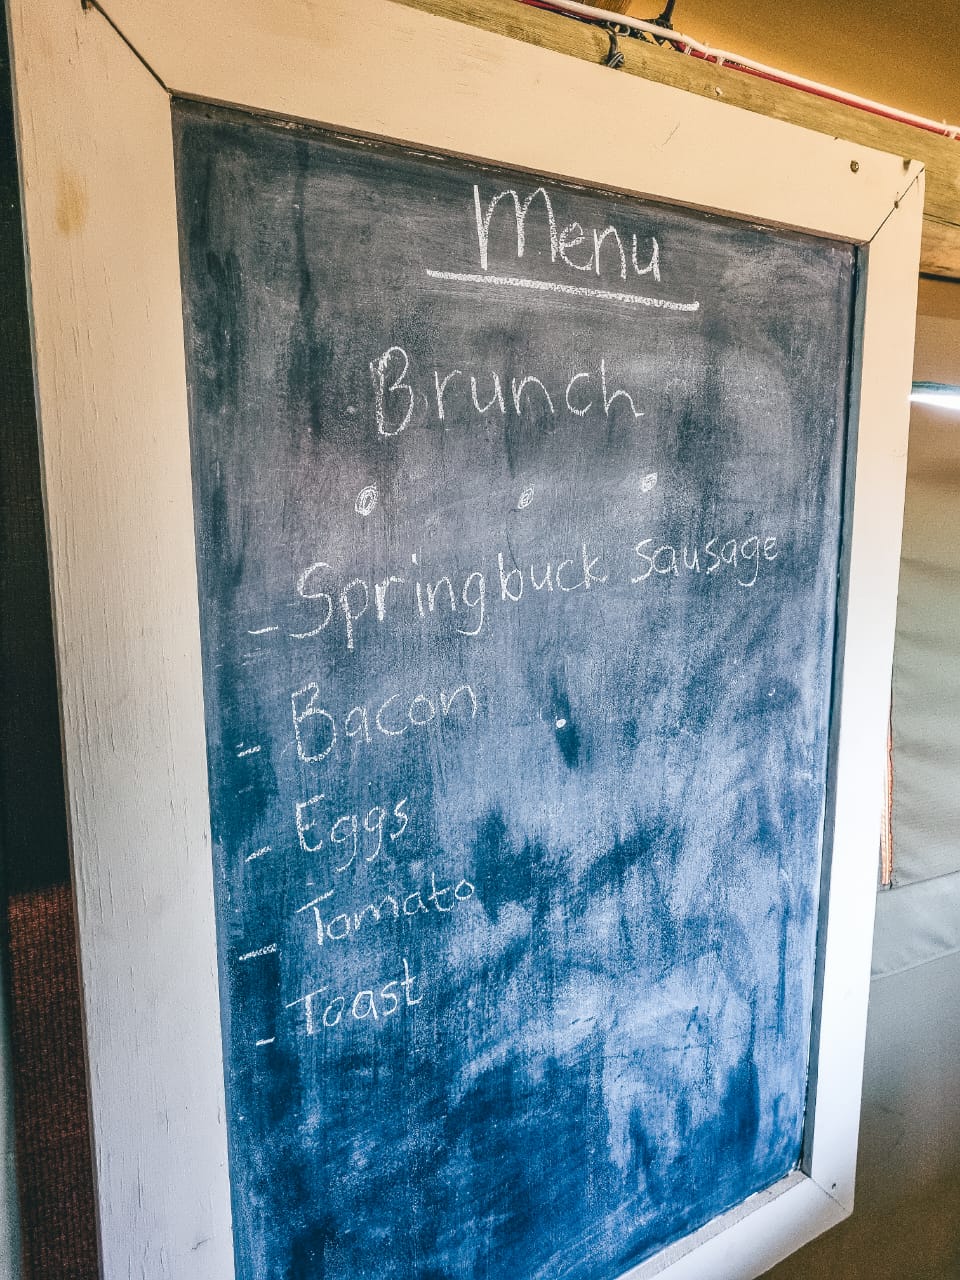 Menu
Brunch
- Springbuck Sausage
- Bacon
- Eggs
- Tomato
- Toast